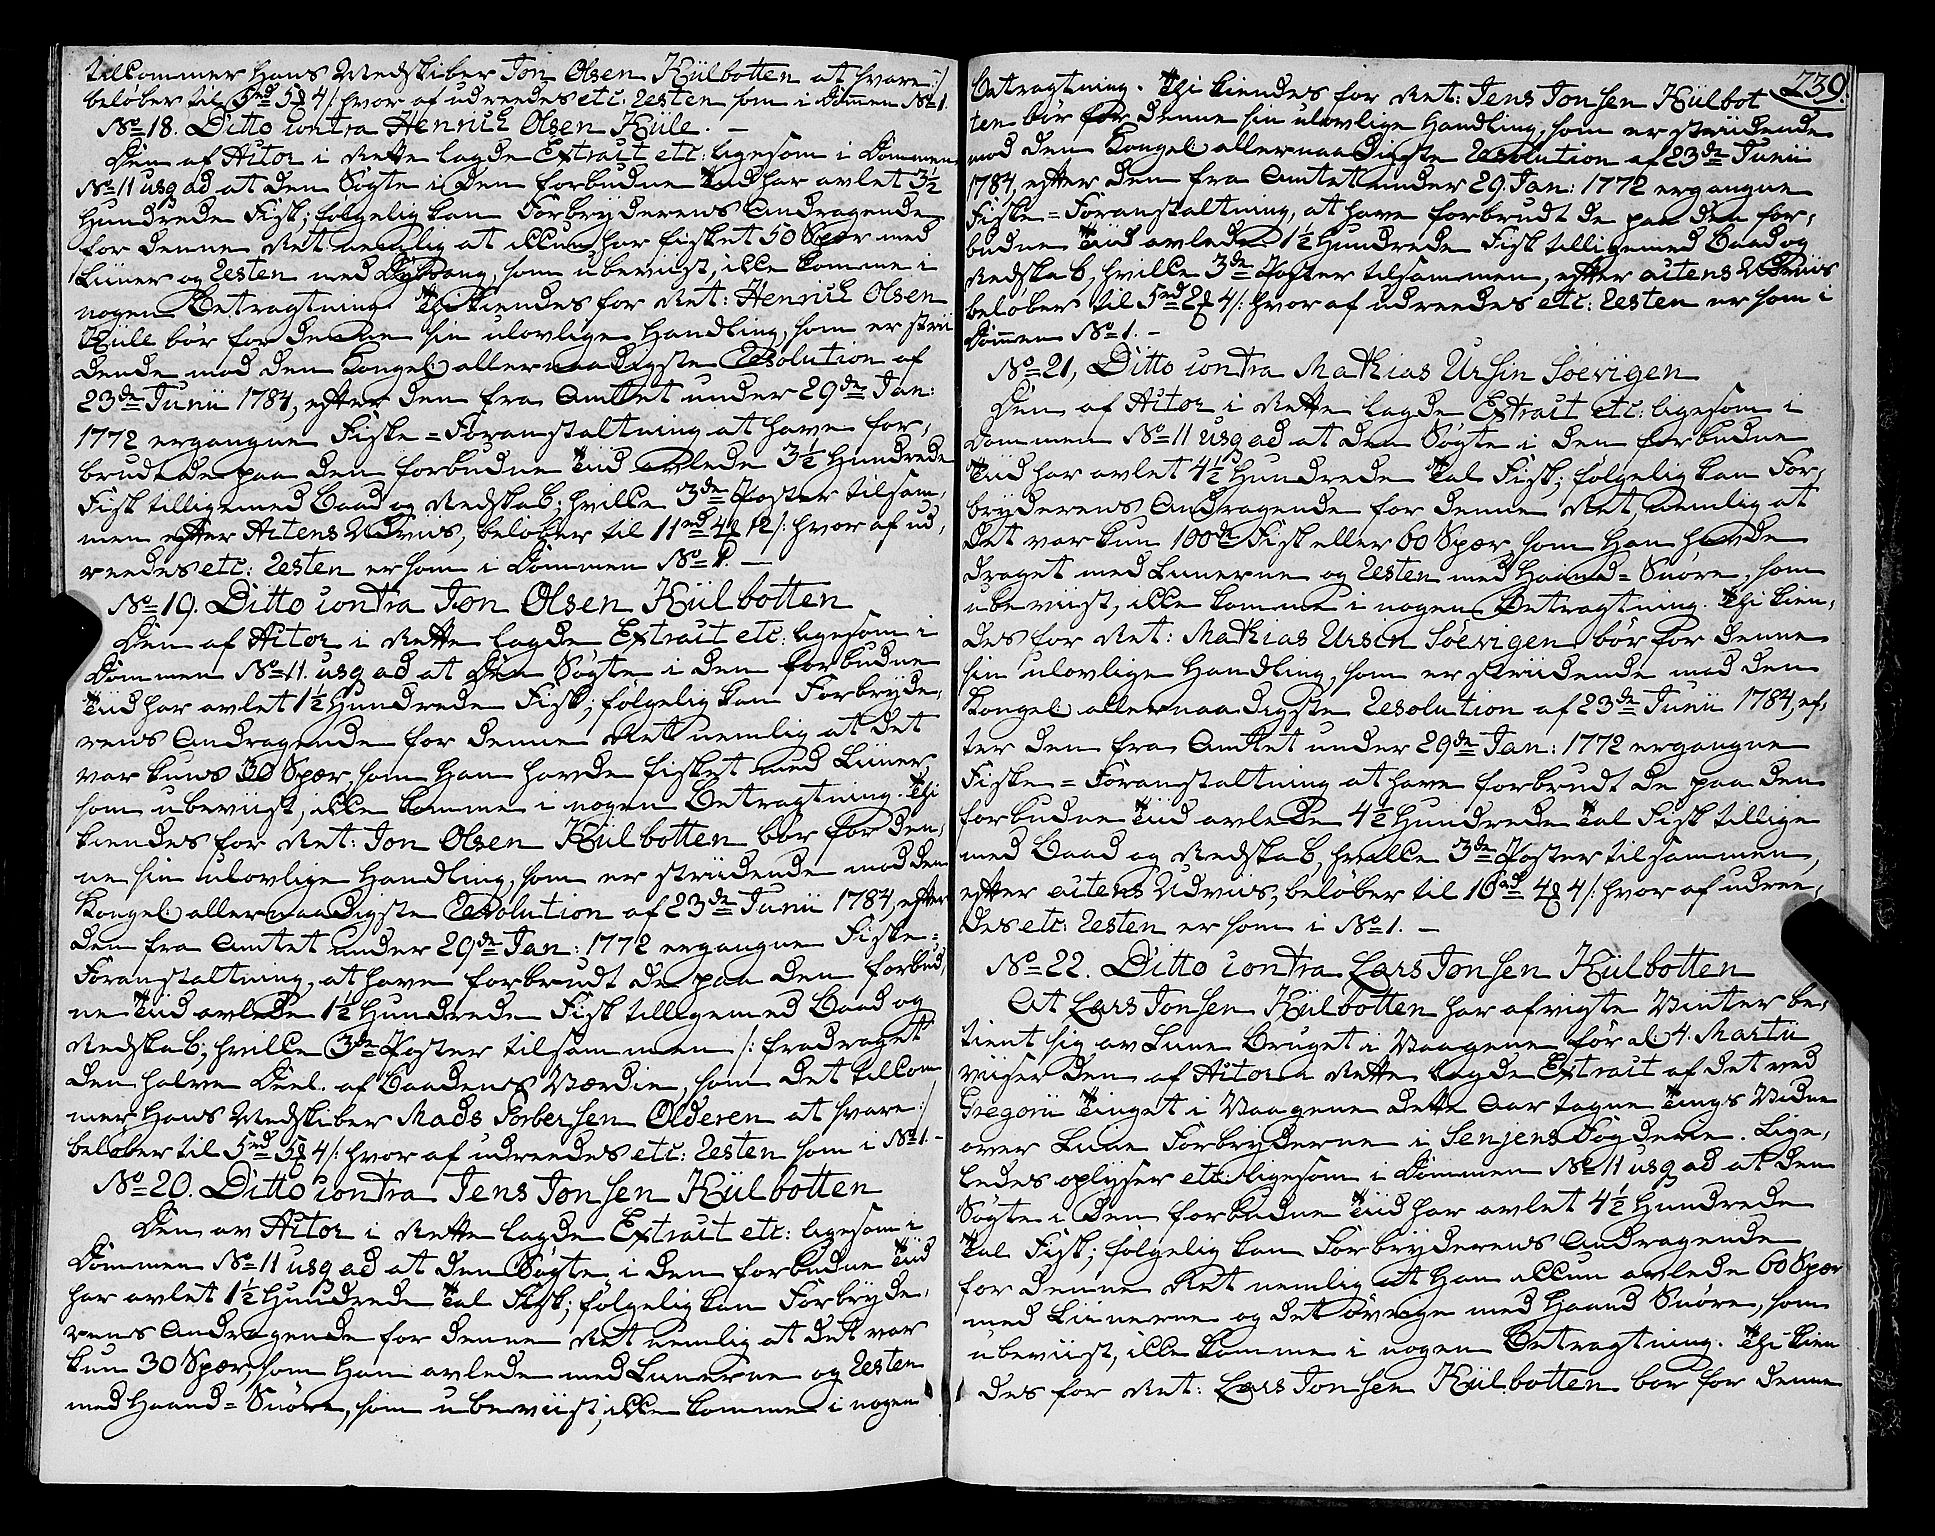 tilkommer Hans Medskiber Jon Olsen Külbotten at svare :/
beløber til 5rd 5ß 4/: hvor af udreedes etc: Resten som i Dommen No 1.
No 18. Ditto contra Henrich Olsen Küle. –
Den af Actor i Rette lagde Extract etc: ligesom i Dommen
No 11 usq ad at den Søgte i den forbudne Tiid har avlet 3½
Hundrede Fisk; følgelig kan Forbryderens Andragende
for denne Ret nemlig at ikkun har fisket 50 Spær med
Liiner og Resten med, som ubeviist, ikke komme i
nogen Betragtning Thi kiendes for Ret: Henrich Olsen
Küle bør for denne sin ulovlige Handling, som er strii
dende mod den Kongel: allernaadigste Resolution af
23de Junii 1784, efter den fra Amtet under 29de Jan:
1772 ergangne Fiske=Foranstaltning at have for,
brudt de paa den forbudne Tiid avlede 3½ Hundrede
Fisk tilligemed Baad og Redskab; hvilke 3de Poster tilsam,
men efter Actens Udviis, beløber til 11rd 4ß 12/: hvor af ud,
reedes etc: Resten er som i Dommen No 1. –
No 19. Ditto contra Jon Olsen Külbotten
Den af Actor i Rette lagde Extract etc: ligesom i
Dommen No 11. usq ad at Den Søgte i den forbudne
Tiid har avlet 1½ Hundrede Fisk; følgelig kan Forbryde,
rens Andragende for denne Ret nemlig at det
var kuns 30 Spær, som Han havde fisket med Liiner
som ubeviist, ikke komme i nogen Betragtning. Thi
kiendes for Ret: Jon Olsen Külbotten bør for den,
ne sin ulovlige Handling, som er striidende mod den
Kongel: allernaadigste Resolution af 23de Junii 1784, efter
den fra Amtet under 29de Jan: 1772 ergangne Fiske=
Foranstaltning, at have forbrudt de paa den forbud,
ne Tiid avlede 1½ Hundrede Fisk tilligemed Baad og
Redskab; hvilke 3de Poster tilsammen /: fradraget
den halve Deel af Baadens Værdie, som det tilkom
mer Hans Medskiber Mads Torbersen Olderen at svare :/
beløber til 5rd 5ß 4/: hvor af udreedes etc: Resten som i No 1. –
No 20. Ditto contra Jens Jonsen Külbotten
Den av Actor i Rette lagde Extract etc: ligesom i
Dommen No 11 usq ad at den Søgte i den forbudne Tiid
har avlet 1½ Hundrede Tal Fisk; følgelig kan Forbryde,
rens Andragende for denne Ret nemlig at det var
kun 30 Spær, som Han avlede med Linerne og Resten
med Haand=Snøre, som ubeviist, ikke komme i nogen
239.
Betragtning. Thi kiendes for Ret: Jens Jonsen Külbot
ten bør for denne sin ulovlige Handling, som er striidende
mod den Kongel: allernaadigste Resolution af 23de Junii
1784, efter den fra Amtet under 29. Jan: 1772 ergangne
Fiske=Foranstaltning, at have forbrudt de paa den for,
budne Tiid avlede 1½ Hundrede Fisk tilligemed Baad og
Redskab, hvilke 3de Poster tilsammen, efter actens Udviis
beløber til 5rd 2ß 4/: hvor af udreedes etc: Resten er som i
Dommen No 1. –
No 21, Ditto contra Mathias Ursin Soevigen
Den af Actor i Rette lagde Extract etc: ligesom i
Dommen No 11 usq ad at den Søgte i den forbudne
Tiid har avlet 4½ Hundrede Tal Fisk; følgelig kan For,
bryderens Andragende for denne Ret, nemlig at
det var kun 100de Fisk eller 60 Spær, som Han havde
draget med Linerne og Resten med Haand=Snøre, som
ubeviist, ikke komme i nogen Betragtning. Thi kien,
des for Ret: Mathias Ursin Soevigen bør for denne
sin ulovlige Handling, som er striidende mod den
Kongel: allernaadigste Resolution af 23de Junii 1784, ef,
ter den fra Amtet under 29de Jan: 1772 ergangne
Fiske=Foranstaltning at have forbrudt de paa den
forbudne Tiid avlede 4½ Hundrede Tal Fisk tillige
med Baad og Redskab, hvilke 3de Poster tilsammen,
efter actens Udviis, beløber til 16rd 4ß 4/: hvor af udree,
des etc: Resten er som i No 1. –
No 22. Ditto contra Lars Jonsen Külbotten
At Lars Jonsen Külbotten har afvigte Vinter be,
tient sig av Line Bruget i Vaagene før d. 4. Martii
viiser den af Actor i Rette lagde Extract af det ved
Gregorii Tinget i Vaagene dette Aar tagne Tings Vidne
over Line Forbryderne i Senjens Fogderie. Lige,
ledes oplyser etc: ligesom i Dommen No 11 usq ad at den
Søgte i den forbudne Tiid har avlet 4½ Hundrede
Tal Fisk; følgelig kan Forbryderens Andragende
for denne Ret nemlig at Han ikkun avlede 60 Spær
med Liinerne og det øvrige med Haand Snøre, som
ubeviist, ikke komme i nogen Betragtning. Thi kien
des for Ret: Lars Jonsen Külbotten bør for denne